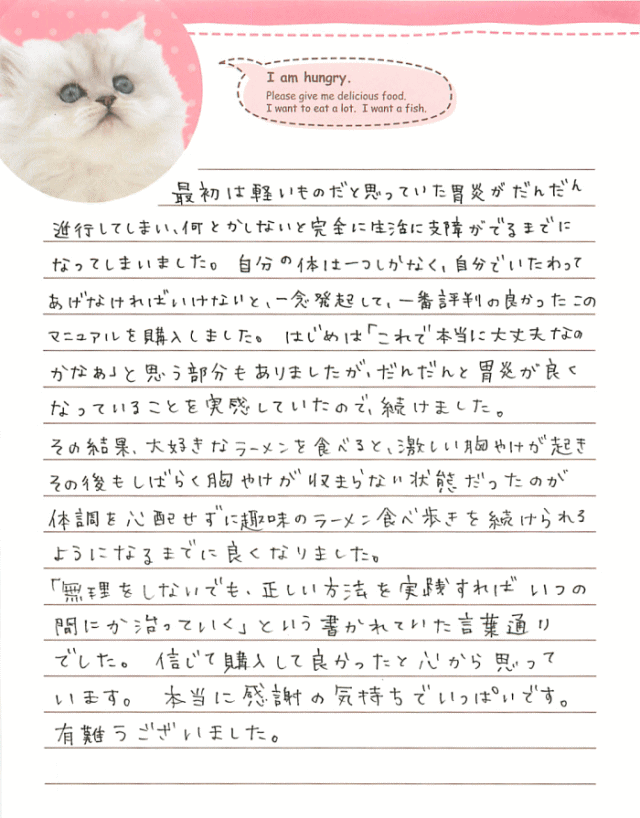 I am hungry.
Please give me delicious food.
I want to eat a lot. I want a fish.
最初は軽いものだと思っていた胃炎がだんだん
進行してしまい、何とかしないと完全に生活に支障がでるまでに
なってしまいました。 自分の体は一つしかなく、自分でいたわって
あげなければいけないと、一念発起して、一番評判の良かったこの
マニュアルを購入しました。 はじめは「これで本当に大丈夫なの
かなぁ」と思う部分もありましたが、だんだんと胃炎が良く
なっていることを実感していたので、続けました。
その結果、大好きなラーメンを食べると、激しい胸やけが起き
その後もしばらく胸やけが収まらない状態だったのが
体調を心配せずに趣味のラーメン食べ歩きを続けられる
ようになるまでに良くなりました。
「無理をしないでも、正しい方法を実践すればいつの
間にか治っていく」という書かれていた言葉通り
でした。 信じて購入して良かったと心から思って
います。 本当に感謝の気持ちでいっぱいです。
有難うございました。